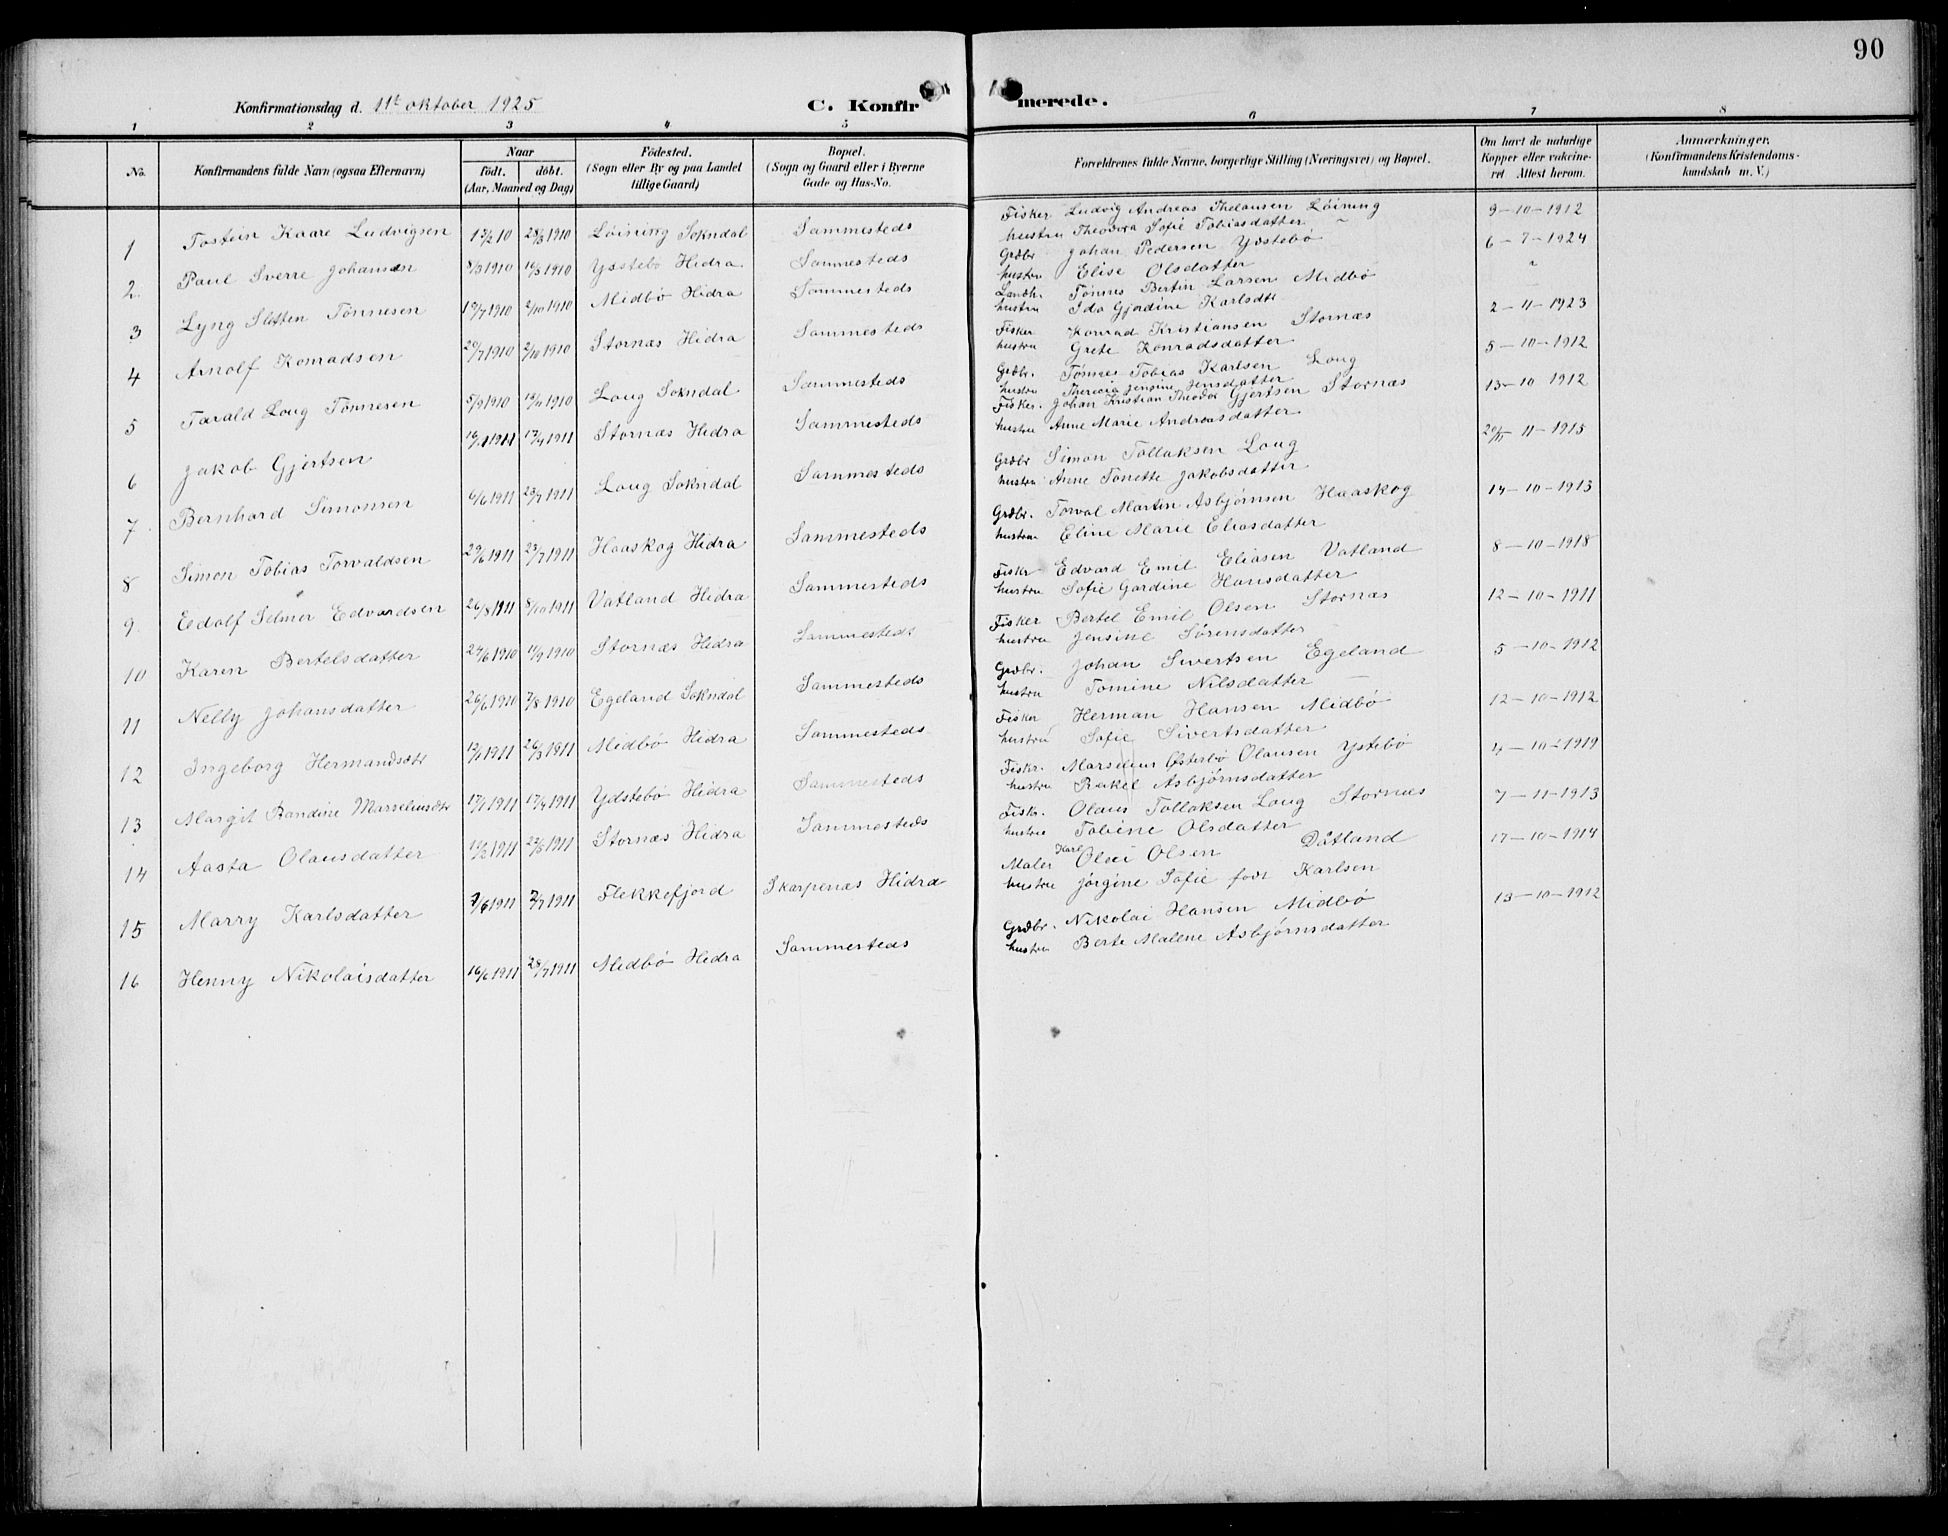 90
Konfirmationsdag d. 11te oktober 1925
C. Konfirmerede.
1 2 3 4 5 6 7 8
No.
Konfirmandens fulde Navn (ogsaa Efternavn)
Naar
født. døbt.
(Aar, Maaned og Dag)
Fødested.
(Sogn eller By og paa Landet
tillige Gaard)
Bopæl.
(Sogn og Gaard eller i Byerne
Gade og Hus-No.
Forældrenes fulde Navne, borgerlige Stilling (Næringsvei) og Bopæl.
Om havt de naturlige
Kopper eller vakcine-
ret Attest herom.
Anmærkninger.
(Konfirmandens Kristendoms-
kundskab m. V.)
1 Tostein Kaare Ludvigsen 28/3 1910 Løining Sokndal Sammesteds
Fisker Ludvig Andreas Løining 9-10-1912
hustru Theodora Sofie Tobiasdatter
2 Paul Sverre Johansen 8/3 1910 Ydstebø Hidra Sammesteds
Grdbr. Johan Pedersen Ydstebø 6-7-1924
hustru Elise Olsdatter
3 Lyng Sletten Tønnesen 2/10 1910 Midbø Hidra Sammesteds
Landh. Tønnes Bertin Larsen Midbø "
hustru Ida Gjødine Karlsdtr 
4 Arnolf Konradsen 20/7 1910 2/10 1910 Stornæs Hidra Sammesteds
Fisker Konrad Kristiansen Stornæs 2-11-1923
hustru Grete Konradsdatter
5 Tarald Loug Tønnesen 5/9 1910 13/11 1910 Loug Sokndal Sammesteds
Grdbr. Tønnes Tobias Karlsen Loug 5-10-1912
hustru Jensine Jensdatter
6 Jakob Gjertsen 17/4 1911 Stornæs Hidra Sammesteds
Fisker. Johan Kristian Theodor Gjertsen Stornæs 13-10 1912
hustru Anne Marie Andreasdatter
7 Bernhard Simonsen 6/6 1911 23/7 1911 Loug Sokndal Sammesteds
Grdbr Simon Tollaksen Loug 11-1915
hustru Anne Tonette Jakobsdatter
8 Simon Tobias Torvaldsen 29/6 1911 23/7 1911 Haaskog Hidra Sammesteds
Grdbr. Torval Martin Asbjørnsen Haaskog 14-10-1913
hustru Eline Marie Eliasdatter
9 Eedolf Selmer Edvardsen 26/8 1911 8/10 1911 Vatland Hidra Sammesteds
Fiskr Edvard Emil Eliasen Vatland 8-10-1918
hustru Sofie Gardine Hansdatter
10 Karen Bertelsdatter 24/6 1910 11/9 1910 Stornæs Hidra Sammesteds
Fisker Bertel Emil Olsen Stornæs 12-10-1911
hustru Jensine Sørensdatter
11 Nelly Johansdatter 26/6 1910 7/8 1910 Egeland Sokndal Sammesteds
Grdbr. Johan Sivertsen Egeland 5-10-1912
hustru Tomine Nilsdatter
12 Ingeborg Hermandsdtr 26/3 1911 Midbø Hidra Sammesteds
Fisker Herman Hansen Midbø 12-10-1912
hustru Sofie Sivertsdatter
13 Margit Randine Marseliusdtr 17/1 1911 17/4 1911 Ydstebø Hidra Sammesteds
Fiskr. Marselius Østerbø Olausen Ystebø 4-10-1919
hustru Rakel Asbjørnsdatter
14 Aasta Olausdatter 12/2 1911 Stornæs Hidra Sammesteds
Fiskr. Olaus Tollaksen Loug Stornæs 7-11-1913
hustru Tobine Olsdatter
15 Marry Karlsdatter 2/7 1911 Flekkefjord Skarpenæs Hidra
Maler Karl Olai Olsen Dåtland 17-10-1914
hustru Jørgine Sofie født Karlsen
16 Henny Nikolaisdatter 16/6 1911 28/7 1911 Midbø Hidra Sammesteds
Grdbr. Nikolai Hansen Midbø 13-10-1912
hustru Berte Malene Asbjørnsdatter